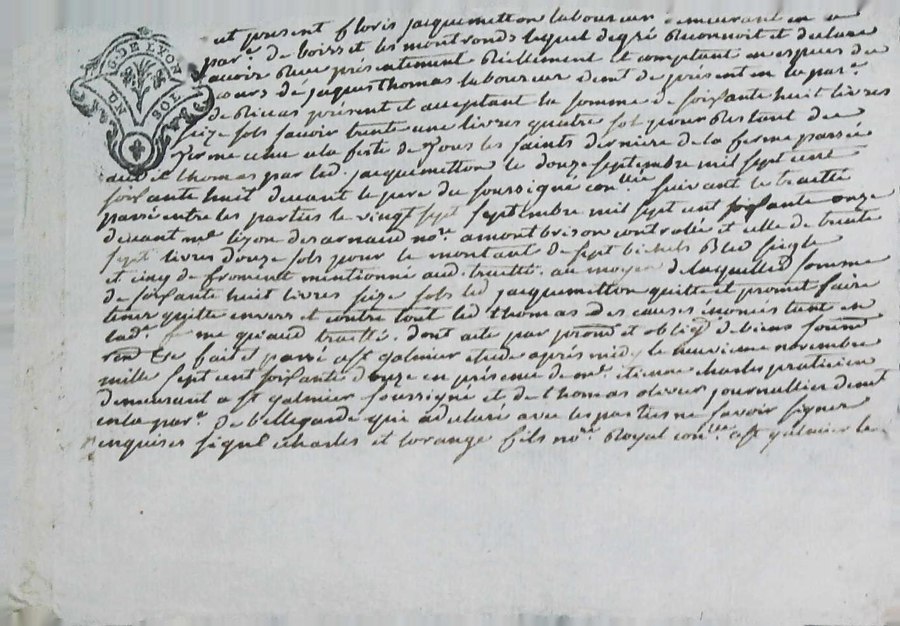 G. DE LYON
UN SOL
est present floris jacquemetton laboureur demeurant en la
par.e de boisset les montronds lequel de gré Reconnoit et declare
avoir Reçu présentement Réellement et comptant en espèces du
cours de jaques thomas laboureur dem.t de présent en la par.e
de Rivas présent et acceptant la somme de soisante huit livres
seize sols savoir trente une livres quatre sol pour Restant du
terme echu a la feste de tous les saints derniere de la ferme passée
aud. thomas par led. jacquemetton le douze septembre mil sept cent
soisante huit devant le pere du soussigné con.er suivant le traitté
passé entre les parties le vingt sept septembre mil sept cent soisante onze
devant me. desarnaud no.re a montbrison controllé et celle de trente
sept livres douze sols pour le montant de sept bichets Bled seigle
et cinq de froment mentionné aud. traitté. au moyen de laquelle somme
de soisante huit livres seize sols led jacquemetton quitte et promet faire
tenir quitte envers et contre tout led thomas des causes énoncés tant en
lad.e ferme qu'aud traitté. dont acte par prom et oblig de biens soum
ren Etc fait et passé a st galmier etude après midy le neuvieme novembre
mille sept cent soisante douze en présence de me. etienne charles praticien
demeurant a st galmier soussigné et de thomas olivier journallier dem.t
en la par.e de bellegarde qui a déclaré avec les parties ne savoir signer
enquises signé charles et lorange fils no.re Royal con.er a st galmier le